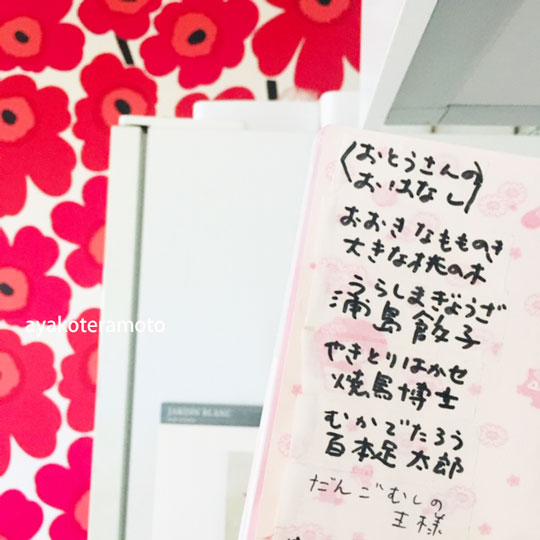 ayakoteramoto
JARDIN BLANC
(おとうさんの
おはなし)
おおきなもものき
大きな桃の木
うらしまぎょうざ
浦島餃子
やきとりはかせ
焼鳥博士
むかでたろう
百本足太郎
だんごむしの
王様